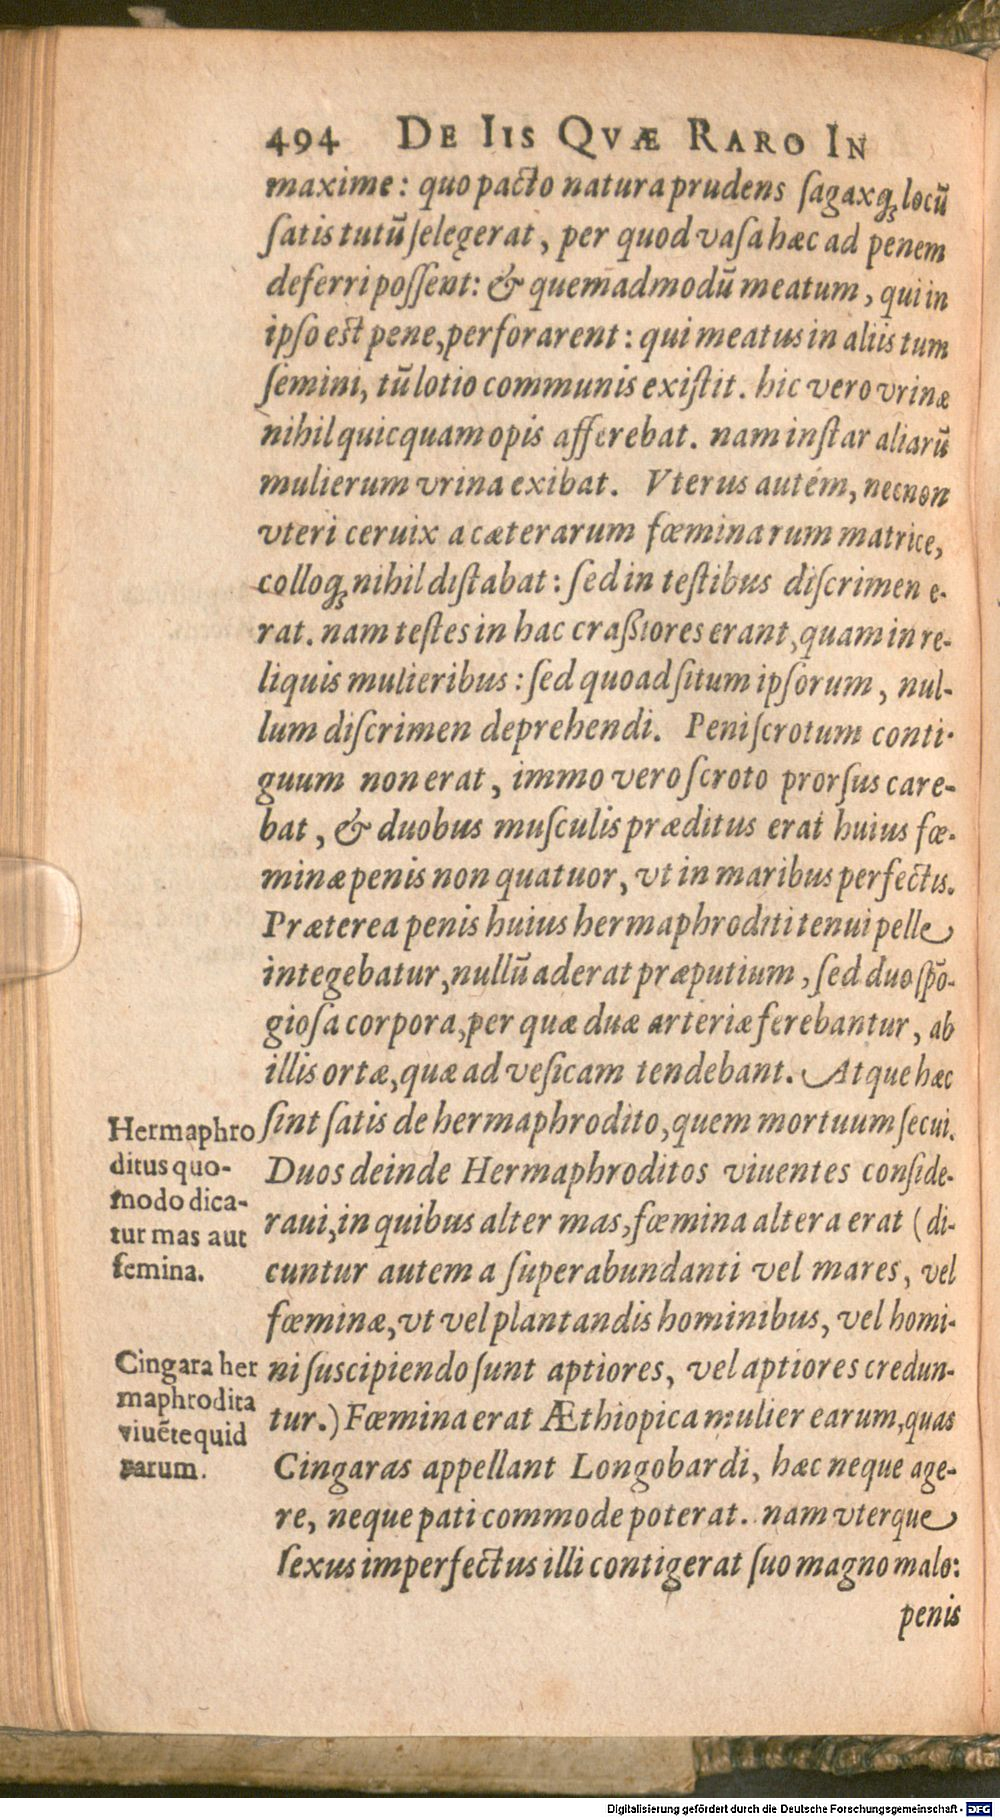 494 DE IIS QVÆ RARO IN
maxime: quo pacto natura prudens ſagaxq́; locū
ſatis tutū ſelegerat, per quod vaſa hæc ad penem
deferri poſſent: & quemadmodū meatum, qui in
ipſo eſt pene, perforarent: qui meatus in aliis tum
ſemini, tū lotio communis exiſtit. hic vero vrinæ
nihil quicquam opis afferebat. nam inſtar aliarū
mulierum vrina exibat. Vterus autem, necnon
vteri ceruix a cæterarum fœminarum matrice,
colloq́; nihil diſtabat: ſed in teſtibus diſcrimen e-
rat. nam teſtes in hac craßiores erant, quam in re-
liquis mulieribus: ſed quoad ſitum ipſorum, nul-
lum diſcrimen deprehendi. Peni ſcrotum conti-
guum non erat, immo vero ſcroto prorſus care-
bat, & duobus muſculis præditus erat huius fœ-
minæ penis non quatuor, vt in maribus perfectis.
Præterea penis huius hermaphroditi tenui pelle
integebatur, nullū aderat præputium, ſed duo ſpō-
gioſa corpora, per quæ duæ arteriæ ferebantur, ab
illis ortæ, quæ ad veſicam tendebant. Atque hæc
ſint ſatis de hermaphrodito, quem mortuum ſecui.
Duos deinde Hermaphroditos viuentes conſide-
raui, in quibus alter mas, fœmina altera erat (di-
cuntur autem a ſuperabundanti vel mares, vel
fœminæ, vt vel plantandis hominibus, vel homi-
ni ſuscipiendo ſunt aptiores, vel aptiores credun-
tur.) Fœmina erat Æthiopica mulier earum, quas
Cingaras appellant Longobardi, hæc neque age-
re, neque pati commode poterat. nam vterque
ſexus imperfectus illi contigerat ſuo magno malo:
penis
Hermaphro
ditus quo-
modo dica-
tur mas aut
femina.
Cingara her
maphrodita
viuēte quid
rarum.
Digitalisierung gefördert durch die Deutsche Forschungsgemeinschaft - DFG